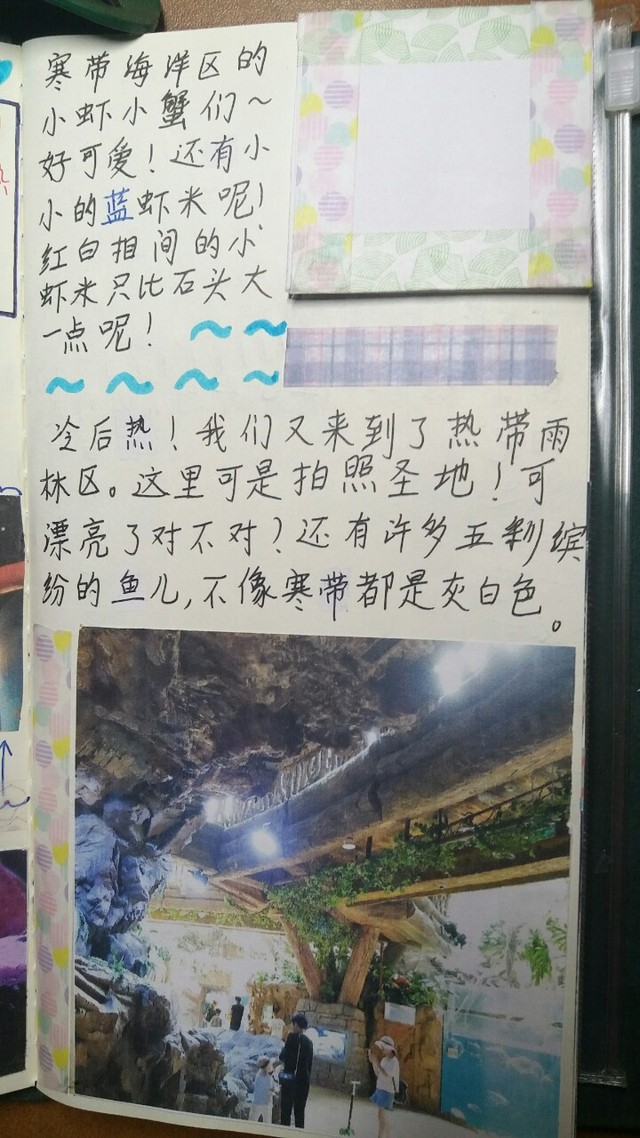 寒带海洋区的
小虾小蟹们~
好可爱！还有小
小的蓝虾米呢！
红白相间的小
虾米只比石头大
一点呢！
冷后热！我们又来到了热带雨
林区。这里可是拍照圣地！可
漂亮了对不对？还有许多五彩缤
纷的鱼儿,不像寒带都是灰白色。